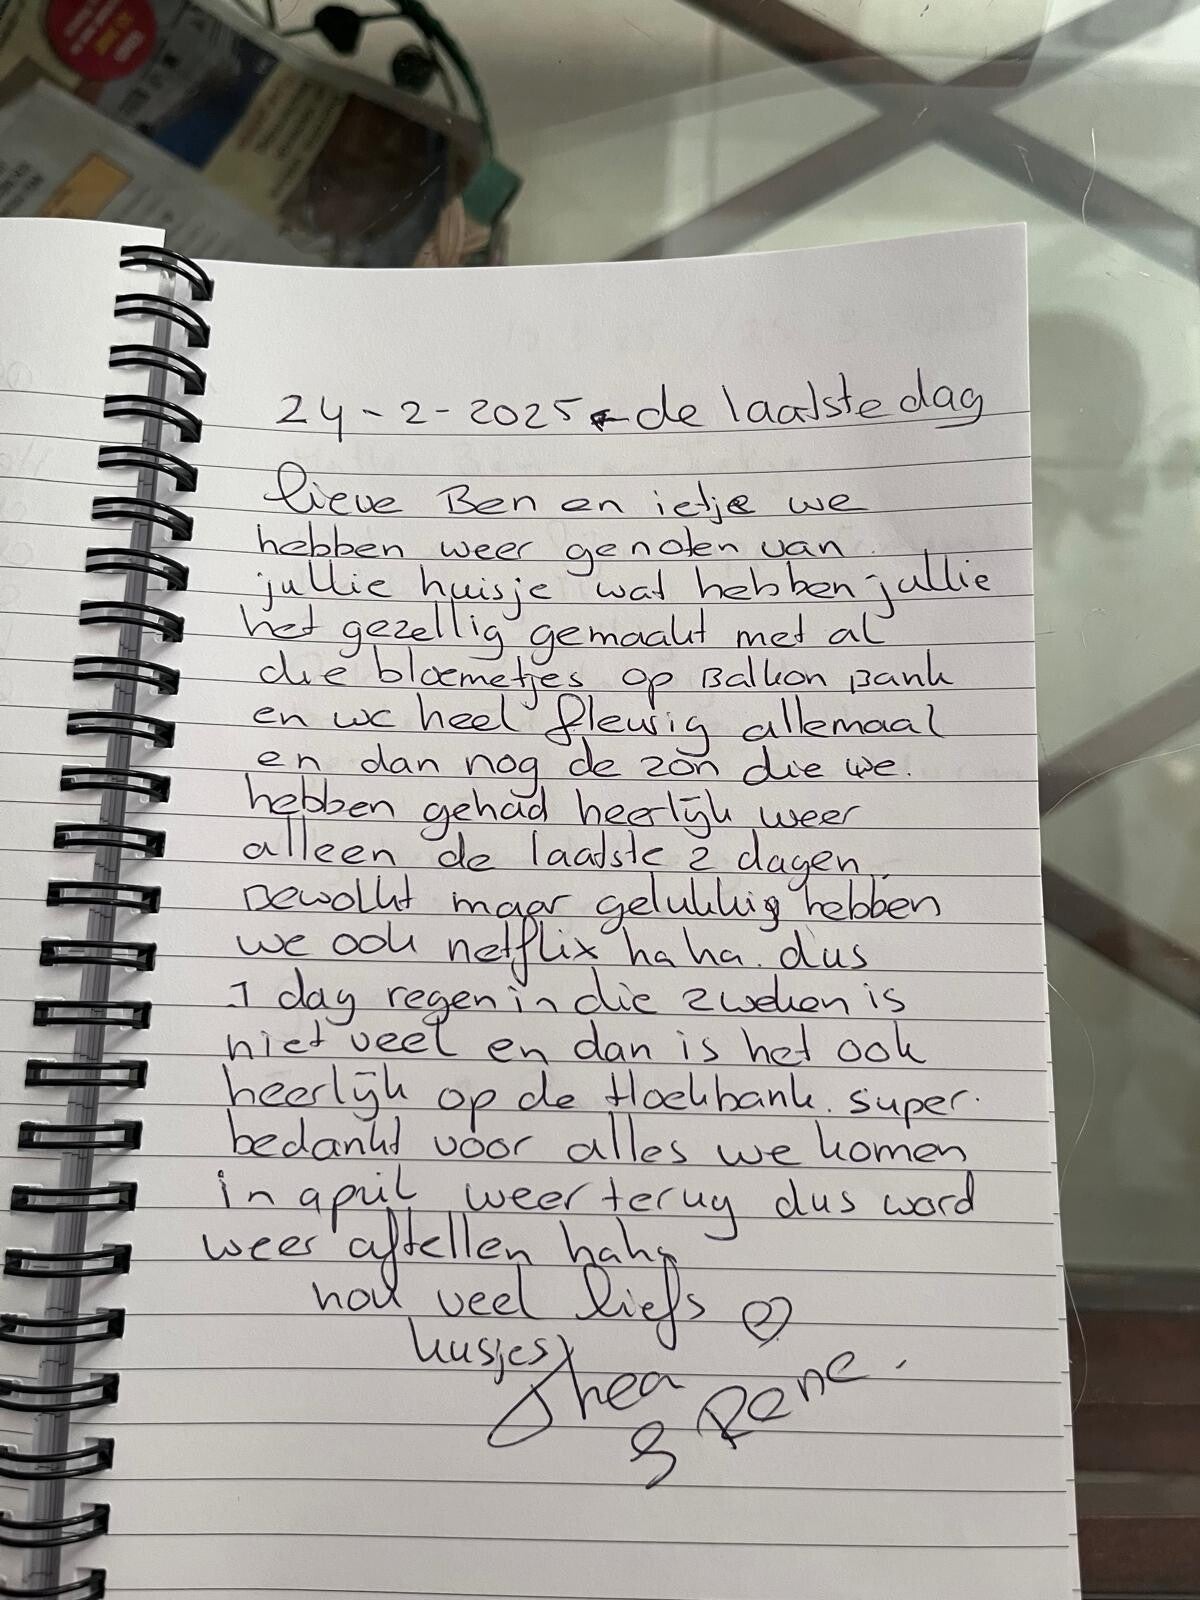 24-2-2025 ← de laatste dag
lieve Ben en ietje we
hebben weer genoten van
jullie huisje wat hebben jullie
het gezellig gemaakt met al
die bloemetjes op Balkon Bank
en wc heel fleurig allemaal
en dan nog de zon die we.
hebben gehad heerlijk weer
alleen de laatste 2 dagen
Bewolkt maar gelukkig hebben
we ook netflix haha. dus
1 dag regen in die 2 weken is
niet veel en dan is het ook
heerlijk op de Hoekbank. super.
bedankt voor alles we komen
in april weer terug dus word
weer aftellen haha
nou veel liefs ♡
kusjes
Thea
& Rene.